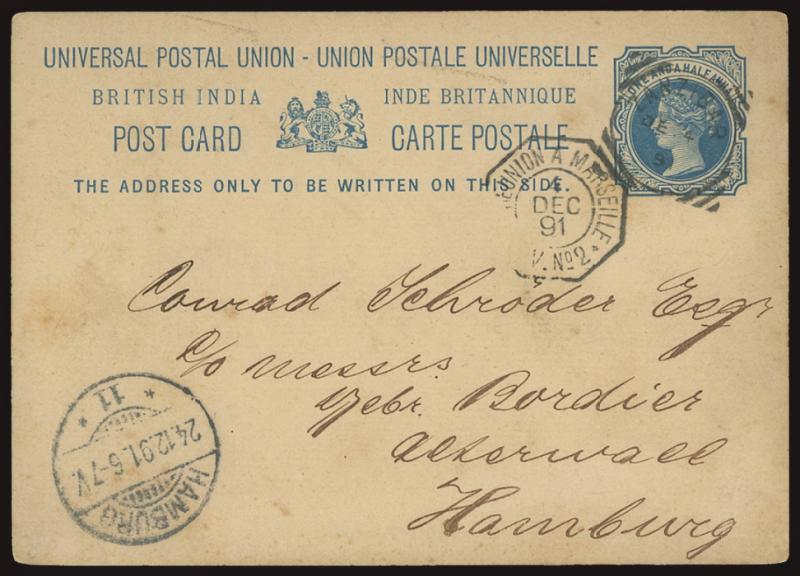 UNIVERSAL POSTAL UNION - UNION POSTALE UNIVERSELLE
BRITISH INDIA INDE BRITANNIQUE
POST CARD CARTE POSTALE
THE ADDRESS ONLY TO BE WRITTEN ON THIS SIDE.
ONE AND A HALF ANNA
ZANZIBAR
DE 4
9
REUNION A MARSEILLE
4
DEC
91
V. No 2 *
Conrad Schroder Esqr
c/o Messrs.
Gebr. Bordier
Alterwall
Hamburg
* 11 *
24.12.91.6-7V.
HAMBURG